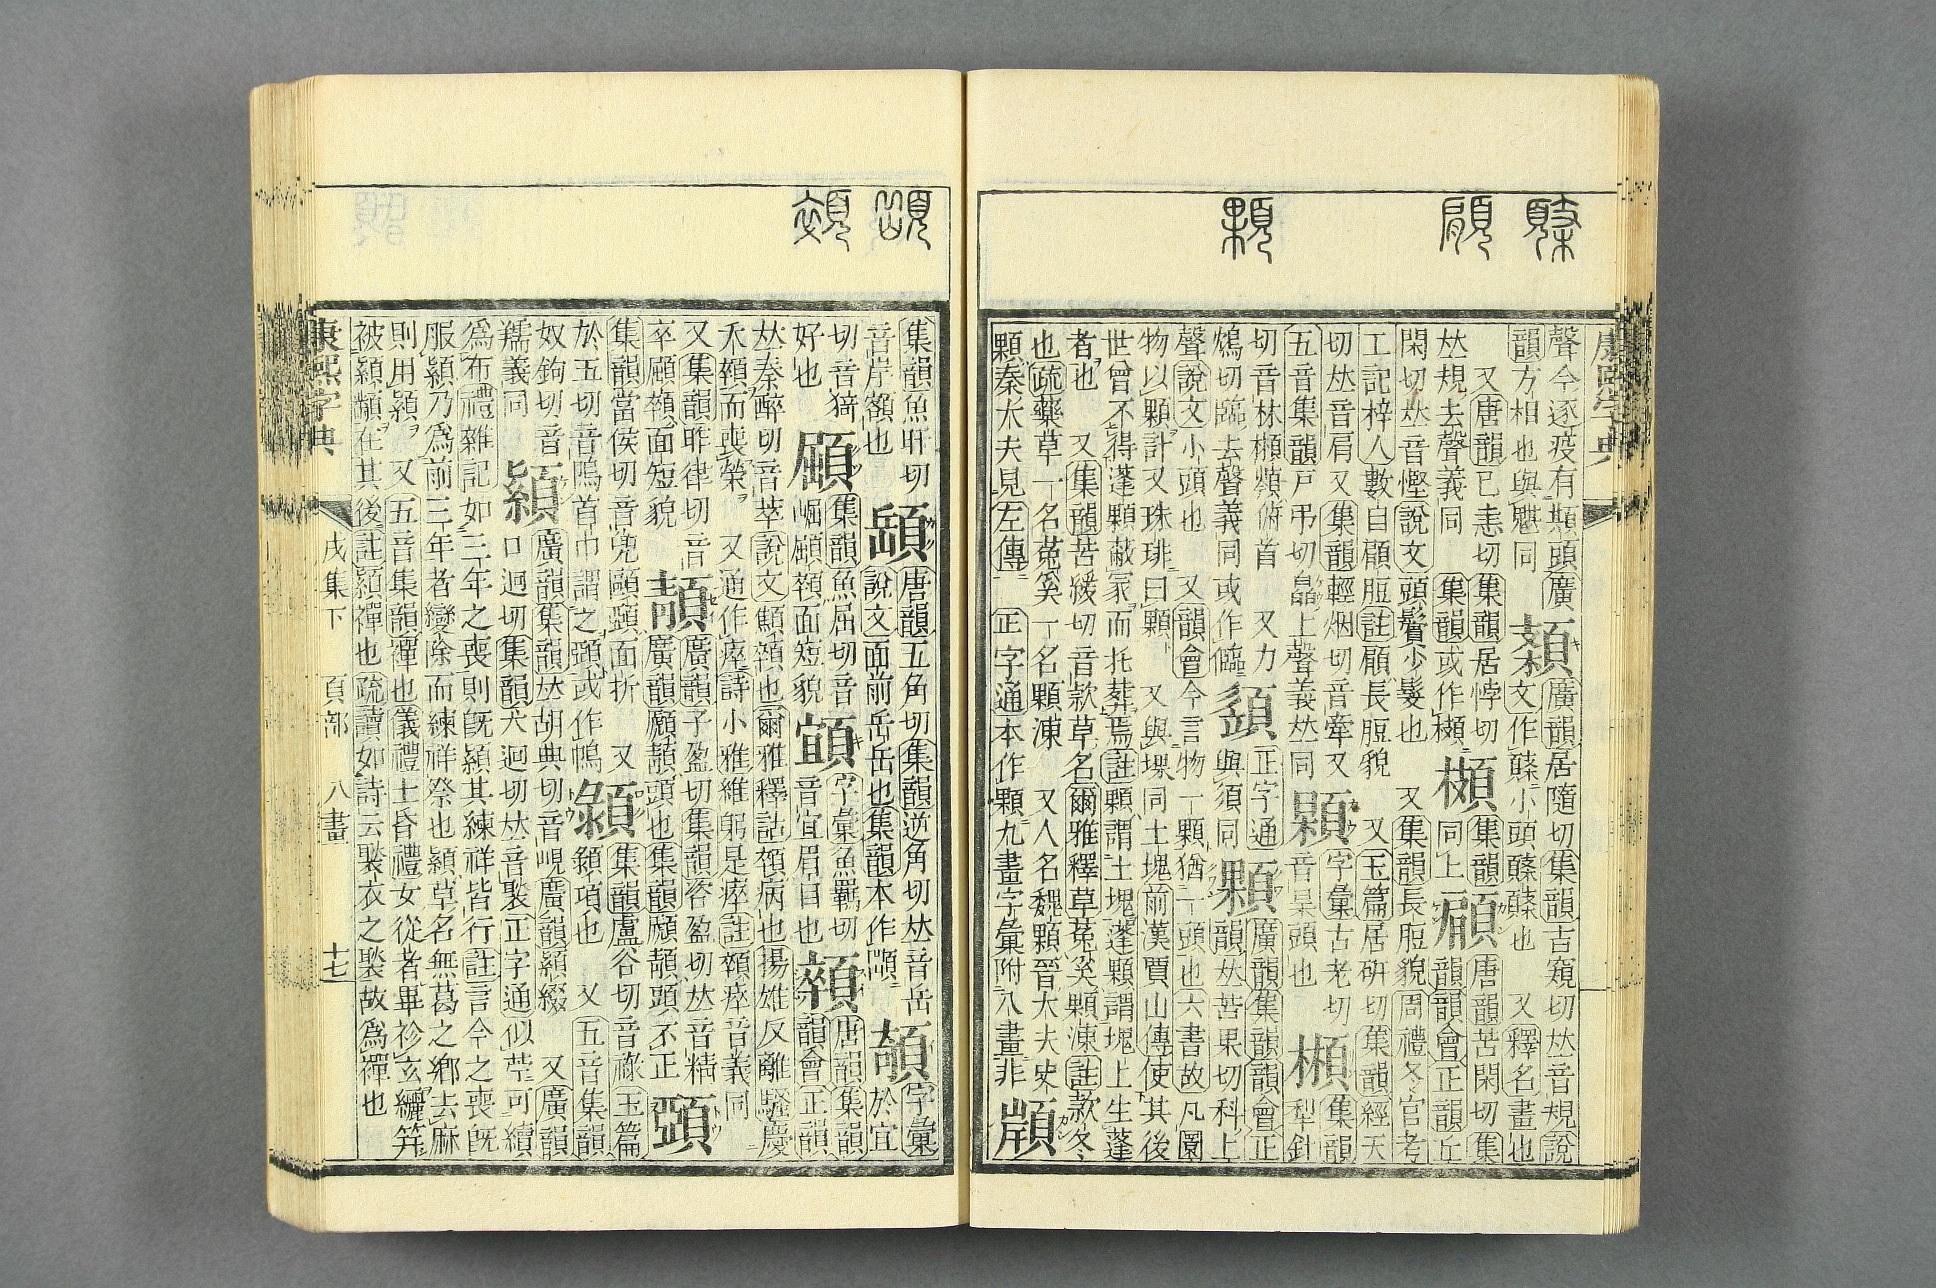 聲今逐疫有䫏頭廣
韻方相也與魌同
廣韻居隨切集韻古窺切𠀤音規說
文作䫌小頭䫌䫌也 又釋名畫也
又唐韻已恚切集韻居悸切
𠀤規去聲義同 集韻或作
集韻
同上
顅
唐韻苦閑切集
韻韻會正韻丘
閑切𠀤音慳說文頭鬢少髮也 又集韻長脰貌周禮冬官考
工記梓人數目顅脰註顅長脰貌 又玉篇居硏切集韻經天
切𠀤音肩又集韻輕烟切音牽又
五音集韻戸弔切皛上聲義𠀤同
字彙古老切
音杲頭也
集韻
犁針
切音林 俯首 又力
鴆切臨去聲義同或作
正字通
與須同
顆
廣韻集韻韻會正
韻𠀤苦果切科上
聲說文小頭也 又韻會今言物一顆猶一頭也六書故凡圜
物以顆計又珠琲曰顆 又與堁同土塊前漢賈山傳使其後
世曾不得蓬顆蔽冢而托葬焉註顆謂土塊蓬顆謂塊上生蓬
者也 又集韻苦緩切音款草名爾雅釋草菟奚顆涷註款冬
也疏藥草一名菟奚一名顆涷 又人名魏顆晉大夫史
顆秦大夫見左傳 正字通本作顆九畫字彙附八畫非
集韻魚旰切
音岸額也
唐韻五角切集韻逆角切𠀤音岳
說文面前岳岳也集韻本作
字彙
於宜
切音猗
好也
集韻魚屈切音
崛 面短貌
字彙魚羈切
音宜眉目也
顇
唐韻集韻
韻會正韻
𠀤秦醉切音萃說文顦顇也爾雅釋詁顇病也揚雄反離騷慶
夭顇而喪榮 又通作瘁詩小雅維躬是瘁註顇瘁音義同
又集韻昨律切音
卒 顇面短貌
廣韻子盈切集韻咨盈切𠀤音精
廣韻 頭也集韻 頭不正
集韻當侯切音兜 面折 又
於五切音鄔首巾謂之 或作
集韻盧谷切音祿玉篇
項也 又五音集韻
奴鉤切音
羺義同
廣韻集韻𠀤胡典切音峴廣韻
又廣韻
口迥切集韻犬迥切𠀤音褧正字通似䔛可績
爲布禮雜記如三年之喪則旣顈其練祥皆行註言今之喪旣
服顈乃爲前三年者變除而練祥祭也顈草名無葛之鄕去麻
則用顈 又五音集韻禪也儀禮士昏禮女從者畢袗玄纚笄
被顈黼在其後註顈禪也疏讀如詩云褧衣之褧故爲禪也
康熙字典 戌集下 頁部 八畫 十七